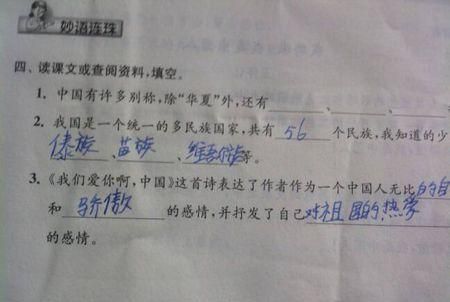 妙语连珠
四、读课文或查阅资料,填空。
1. 中国有许多别称,除“华夏”外,还有 、 、
2. 我国是一个统一的多民族国家,共有 56 个民族,我知道的少
傣族、苗族、维吾尔族等。
3. 《我们爱你啊,中国》这首诗表达了作者作为一个中国人无比的自
和 骄傲 的感情,并抒发了自己对祖国的热爱
的感情。